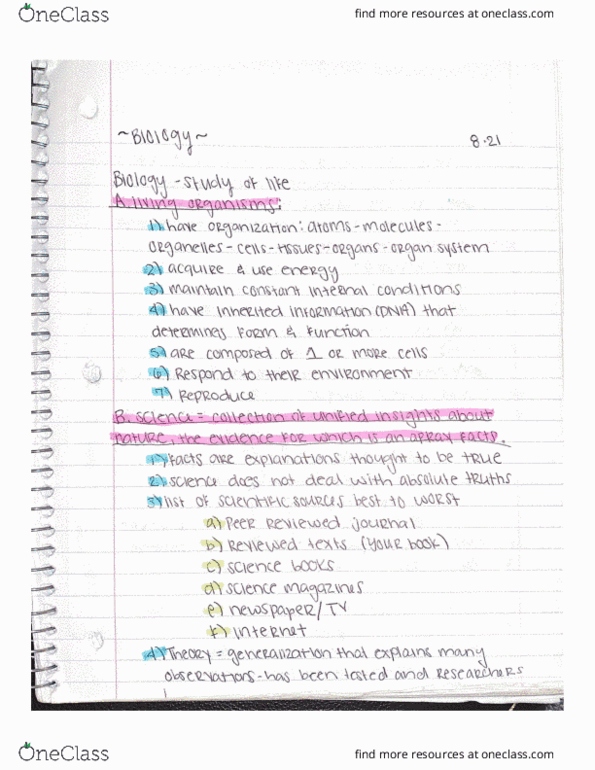 OneClass
find more resources at oneclass.com
~Biology~
8.21
Biology - study of life
A. living organisms:
1) have organization: atoms - molecules -
organelles - cells - tissues - organs - organ system
2) acquire & use energy
3) maintain constant internal conditions
4) have inherited information (DNA) that
determines form & function
5) are composed of 1 or more cells
6) Respond to their environment
7) Reproduce
B. Science = collection of unified insights about
nature, the evidence for which is an array facts.
1) facts are explanations thought to be true
2) science does not deal with absolute truths
3) list of scientific sources best to worst
a) Peer Reviewed journal
b) Reviewed texts (your book)
c) science books
d) science magazines
e) newspaper/TV
f) internet
4) Theory = generalization that explains many
observations - has been tested and researchers
OneClass
find more resources at oneclass.com